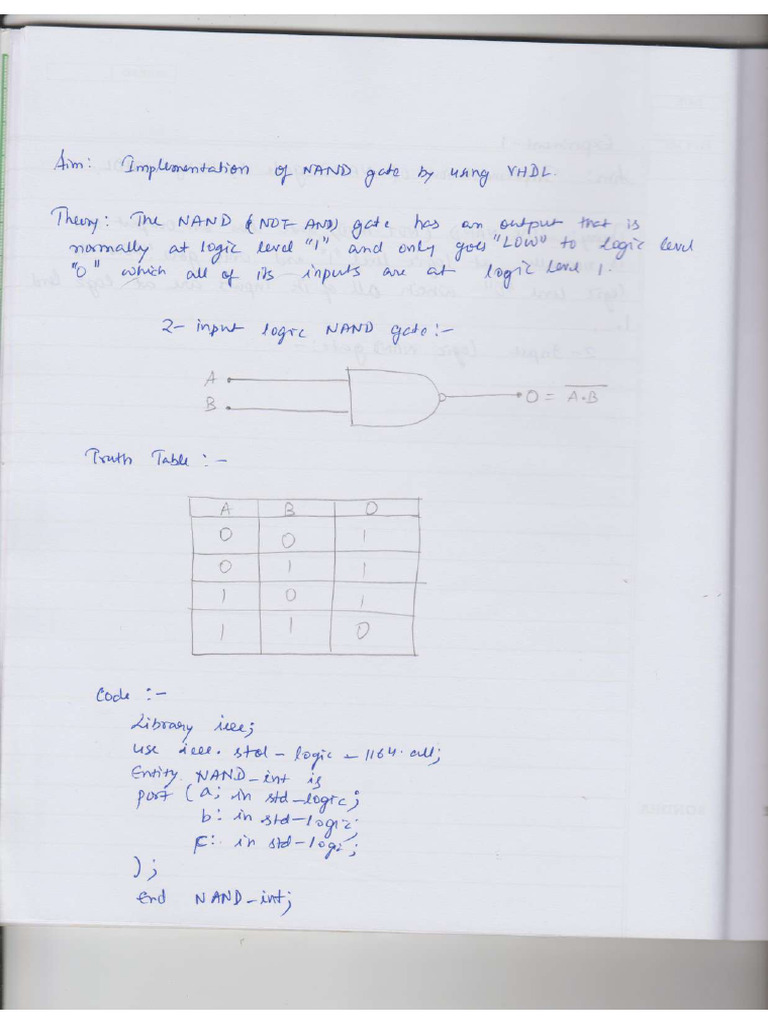 Aim: Implementation of NAND gate by using VHDL.
Theory: The NAND (NOT-AND) gate has an output that is
normally at logic level "1" and only goes "LOW" to logic level
"0" which all of its inputs are at logic level 1.
2-input logic NAND gate:-
A
B
O = \overline{A.B}
Truth Table :-
A B O
0 0 1
0 1 1
1 0 1
1 1 0
Code :-
Library ieee;
use ieee. std - logic - 1164.all;
Entity NAND-int is
port (a; in std-logic;
b: in std-logic;
in std-logic;
);
end NAND-int;